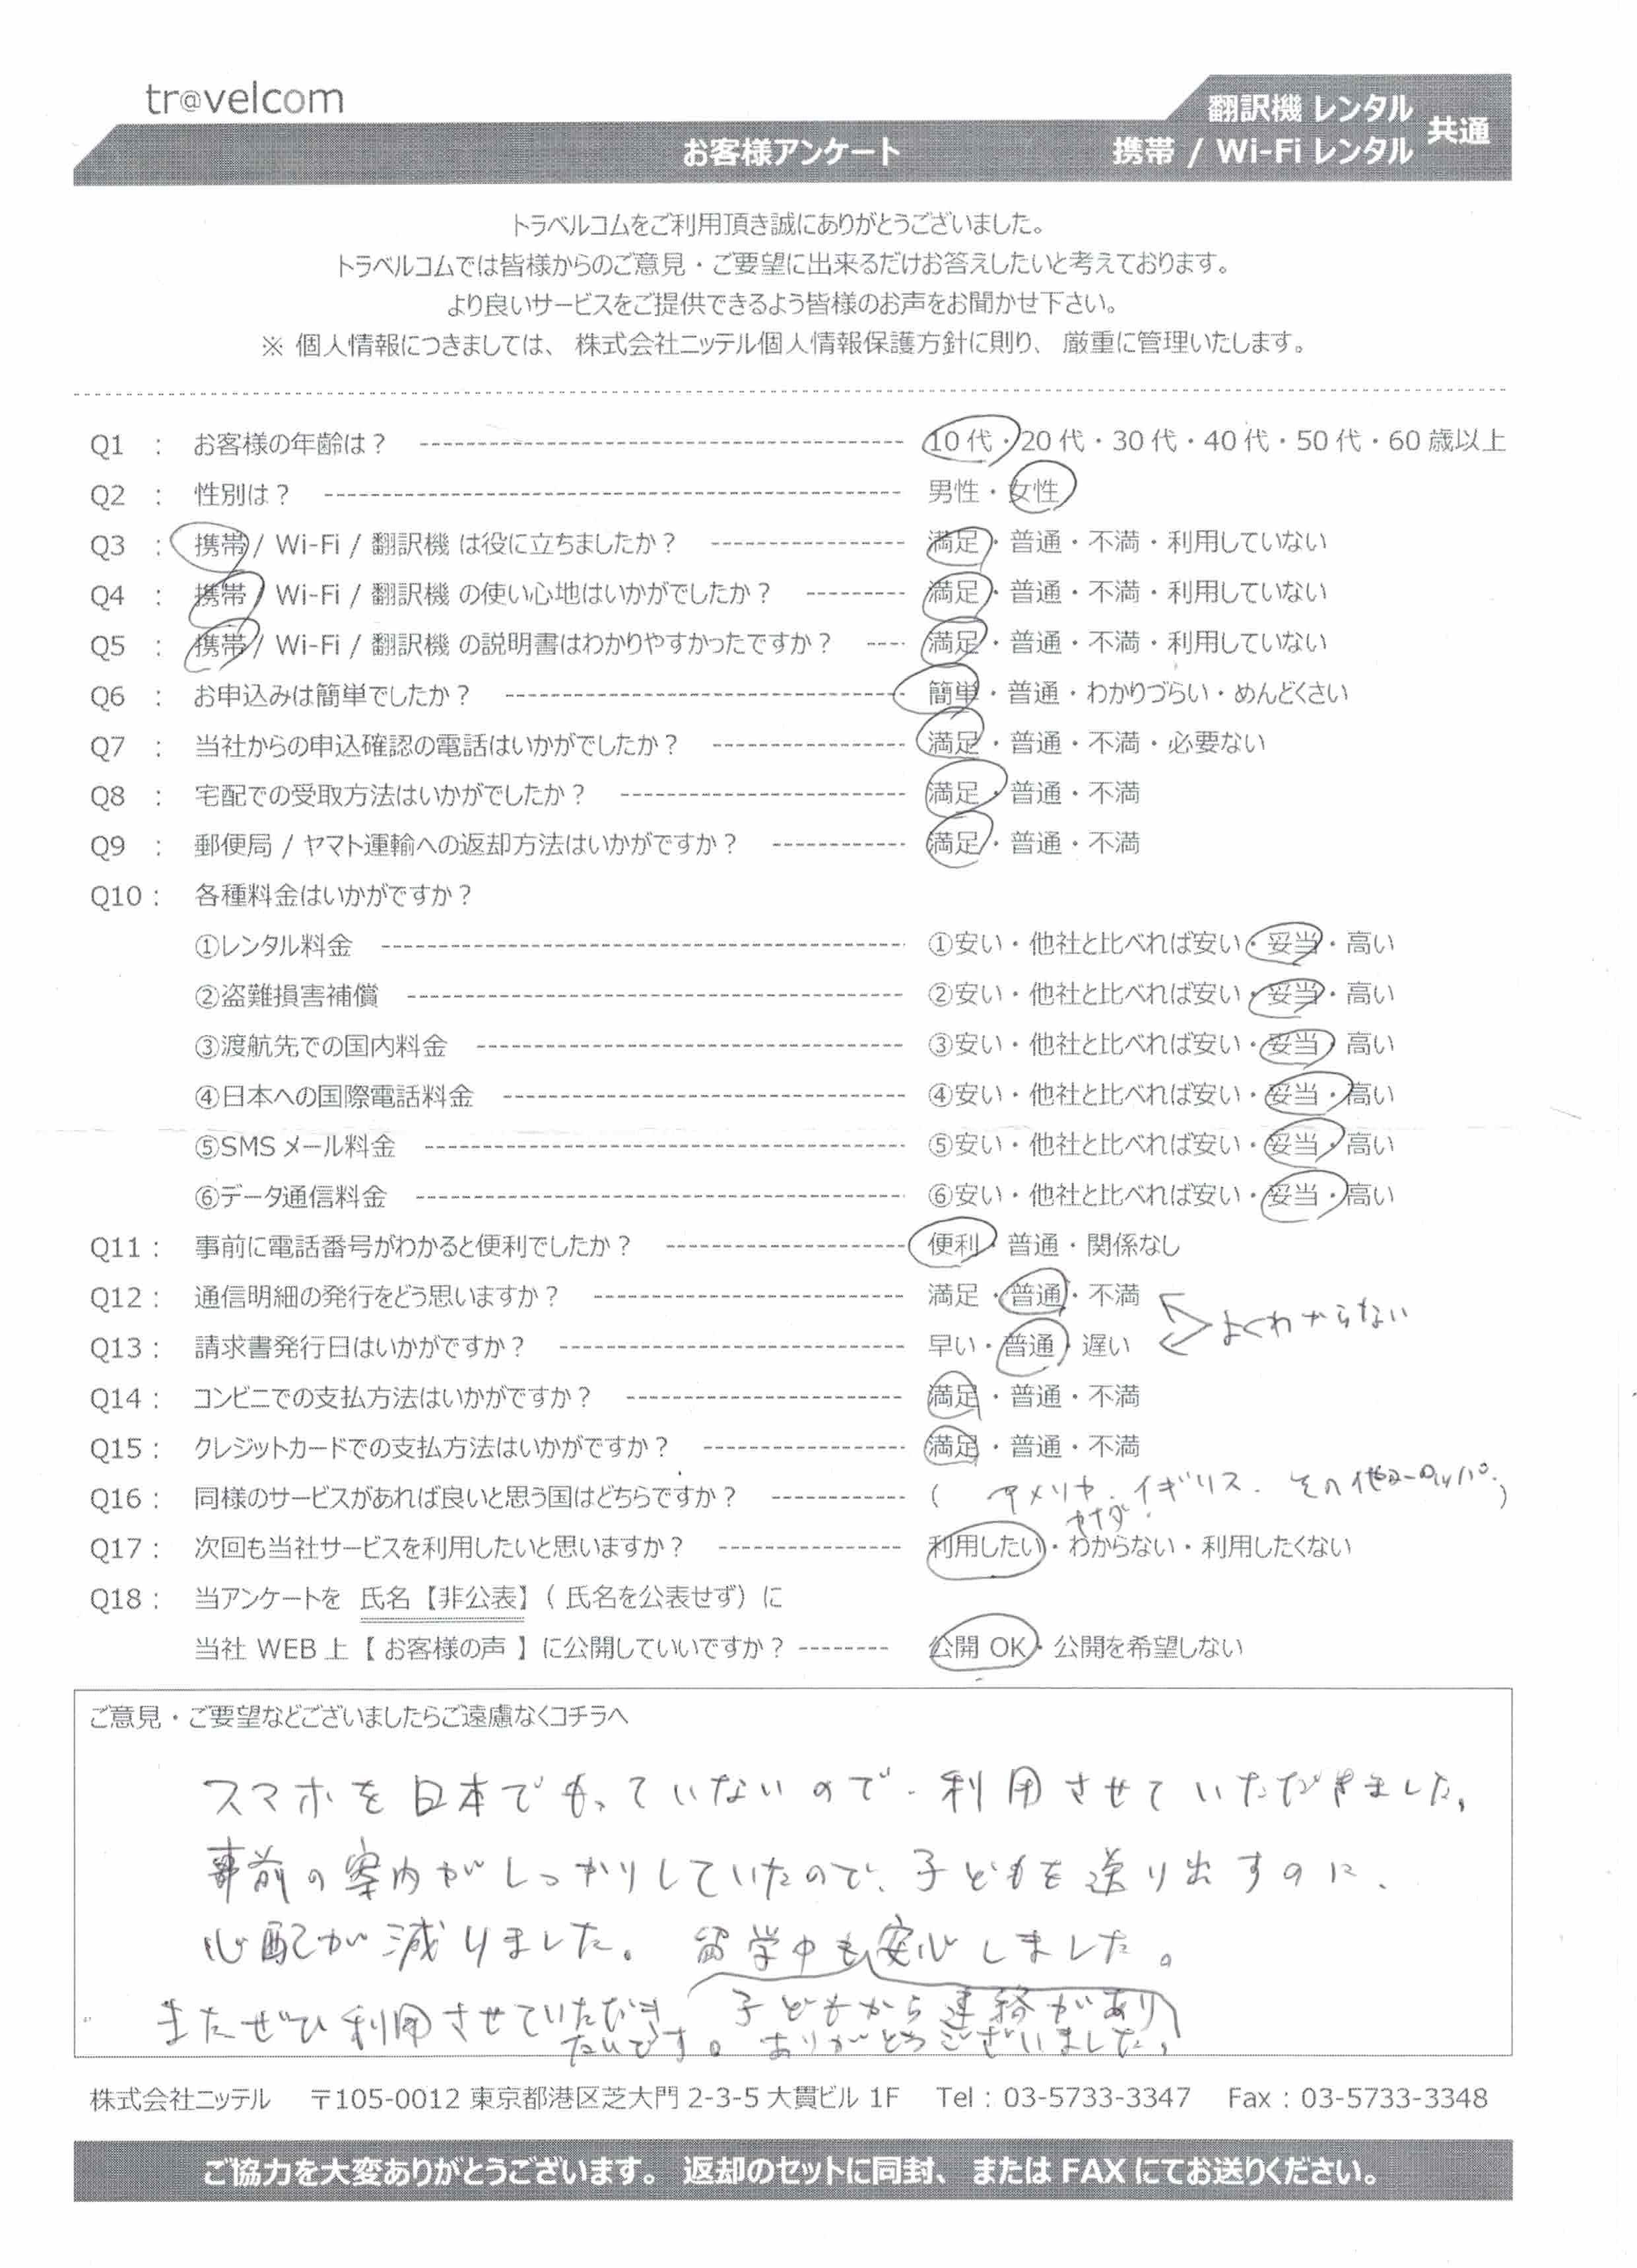 tr@velcom
翻訳機 レンタル
携帯 / Wi-Fi レンタル
共通
お客様アンケート
トラベルコムをご利用頂き誠にありがとうございました。
トラベルコムでは皆様からのご意見・ご要望に出来るだけお答えしたいと考えております。
より良いサービスをご提供できるよう皆様のお声をお聞かせ下さい。
※ 個人情報につきましては、 株式会社ニッテル個人情報保護方針に則り、 厳重に管理いたします。
Q1 : お客様の年齢は? 10代・20代・30代・40代・50代・60歳以上
Q2 : 性別は? 男性・女性
Q3 : 携帯 / Wi-Fi / 翻訳機 は役に立ちましたか? 満足・普通・不満・利用していない
Q4 : 携帯 / Wi-Fi / 翻訳機 の使い心地はいかがでしたか? 満足・普通・不満・利用していない
Q5 : 携帯 / Wi-Fi / 翻訳機 の説明書はわかりやすかったですか? 満足・普通・不満・利用していない
Q6 : お申込みは簡単でしたか? 簡単・普通・わかりづらい・めんどくさい
Q7 : 当社からの申込確認の電話はいかがでしたか? 満足・普通・不満・必要ない
Q8 : 宅配での受取方法はいかがでしたか? 満足・普通・不満
Q9 : 郵便局 / ヤマト運輸への返却方法はいかがですか? 満足・普通・不満
Q10 : 各種料金はいかがですか?
①レンタル料金 ①安い・他社と比べれば安い・妥当・高い
②盗難損害補償 ②安い・他社と比べれば安い・妥当・高い
③渡航先での国内料金 ③安い・他社と比べれば安い・妥当・高い
④日本への国際電話料金 ④安い・他社と比べれば安い・妥当・高い
⑤SMSメール料金 ⑤安い・他社と比べれば安い・妥当・高い
⑥データ通信料金 ⑥安い・他社と比べれば安い・妥当・高い
Q11 : 事前に電話番号がわかると便利でしたか? 便利・普通・関係なし
Q12 : 通信明細の発行をどう思いますか? 満足・普通・不満
よくわからない
Q13 : 請求書発行日はいかがですか? 早い・普通・遅い
Q14 : コンビニでの支払方法はいかがですか? 満足・普通・不満
Q15 : クレジットカードでの支払方法はいかがですか? 満足・普通・不満
Q16 : 同様のサービスがあれば良いと思う国はどちらですか? ( アメリカ・イギリス. その他ヨーロッパ. )
カナダ・
Q17 : 次回も当社サービスを利用したいと思いますか? 利用したい・わからない・利用したくない
Q18 : 当アンケートを 氏名【非公表】( 氏名を公表せず) に
当社 WEB 上【 お客様の声 】に公開していいですか? 公開 OK・公開を希望しない
ご意見・ご要望などございましたらご遠慮なくコチラへ
スマホを日本でもっていないので、利用させていただきました。
事前の案内がしっかりしていたので、子どもを送り出すのに、
心配が減りました。 留学中も安心しました。
子どもから連絡があり
またぜひ利用させていただき
たいです。ありがとうございました。
株式会社ニッテル 〒105-0012 東京都港区芝大門 2-3-5 大貫ビル 1F Tel : 03-5733-3347 Fax : 03-5733-3348
ご協力を大変ありがとうございます。 返却のセットに同封、 または FAX にてお送りください。